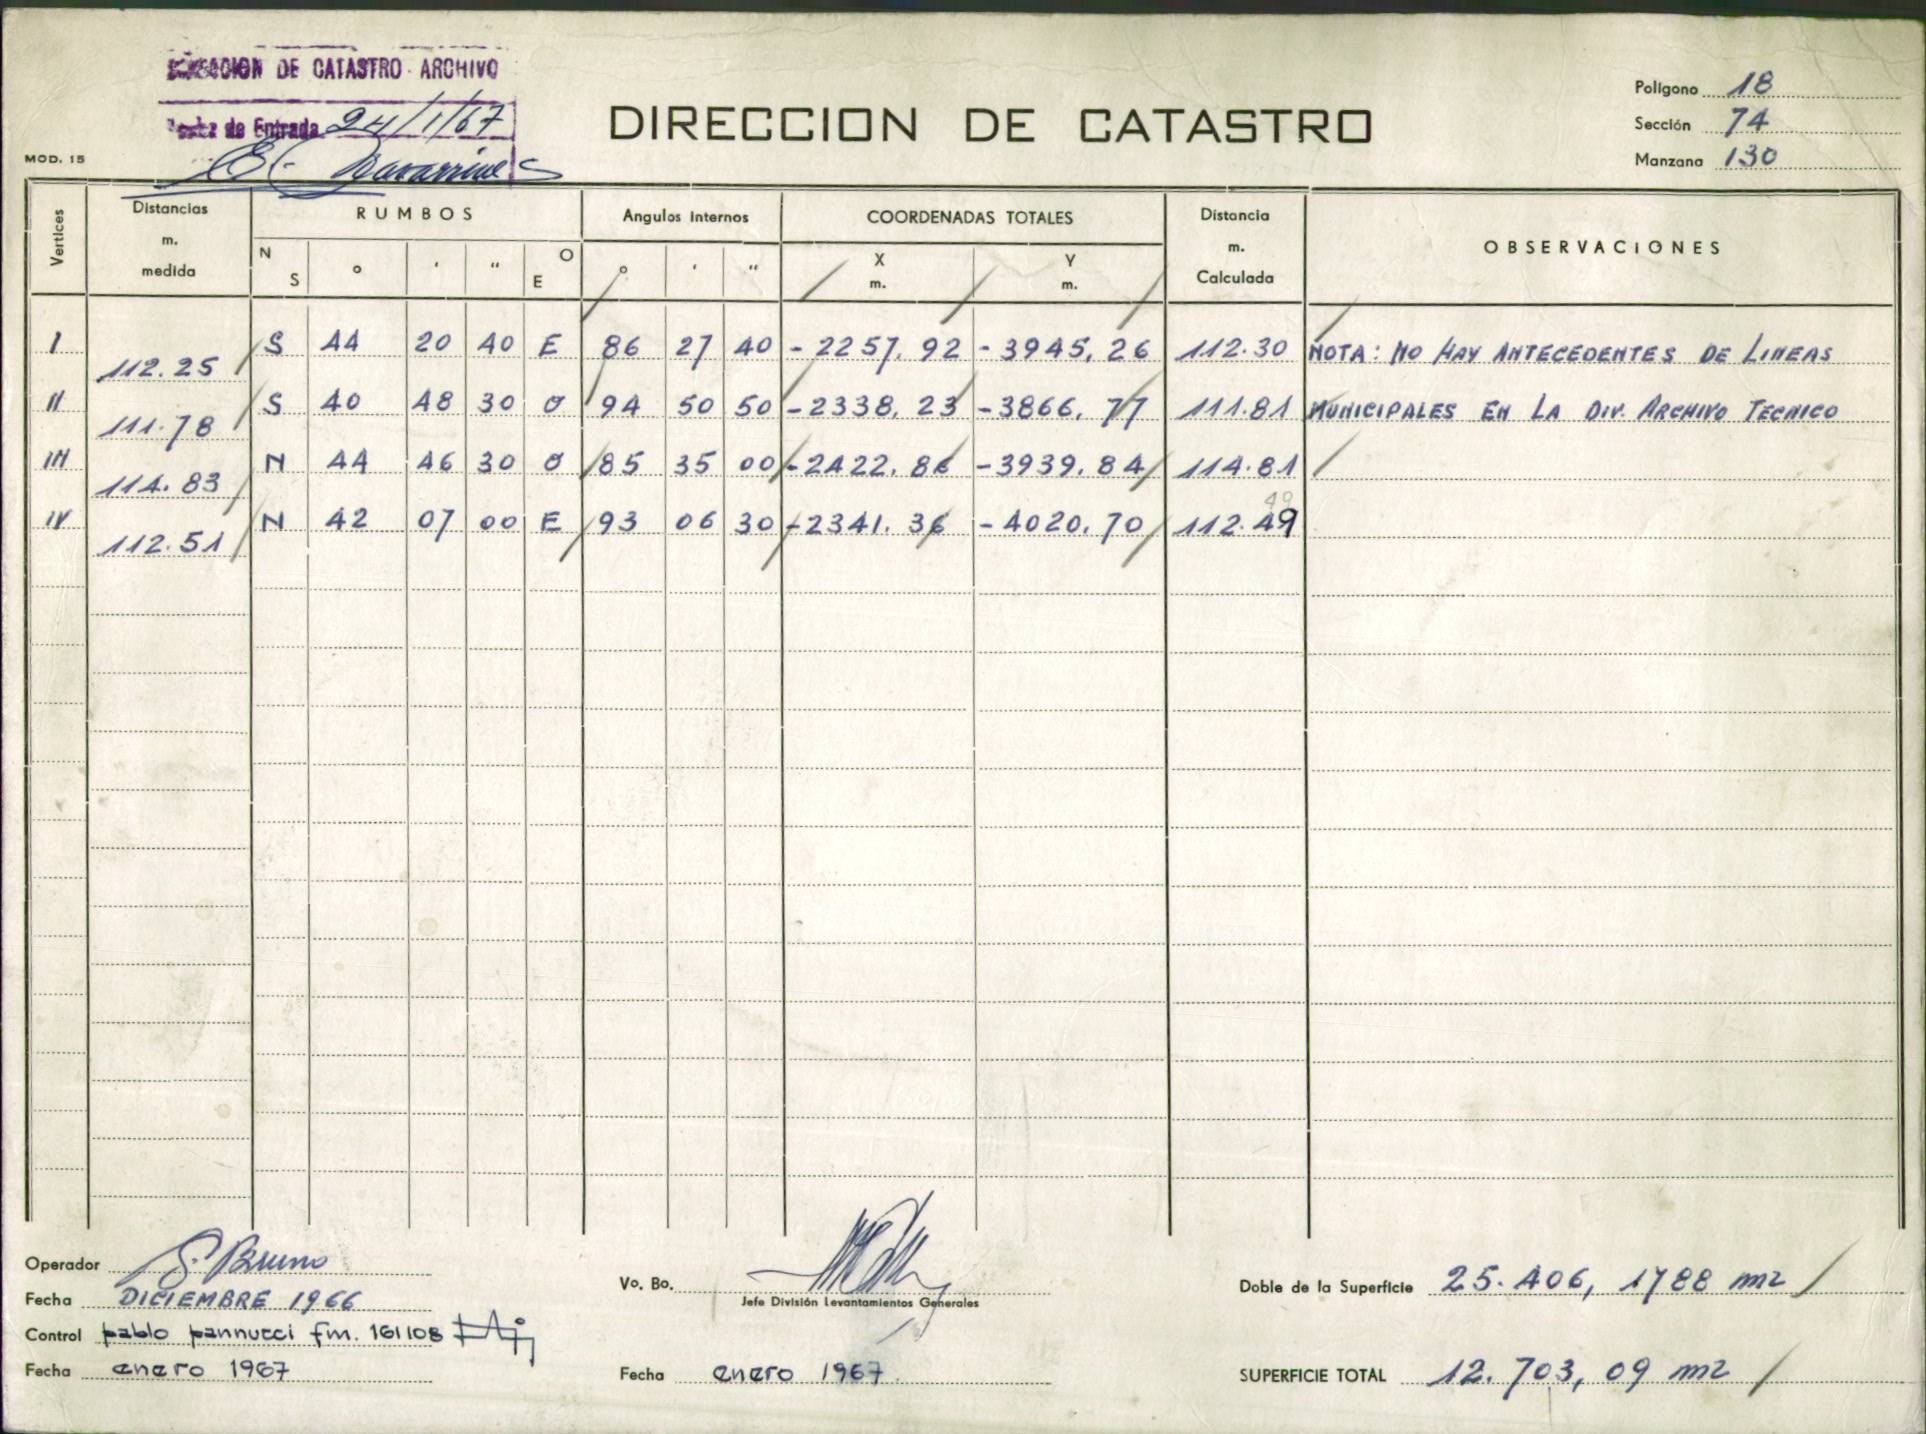 DIRECCION DE CATASTRO - ARCHIVO
Fecha de Entrada 24/1/67
DIRECCION DE CATASTRO
Polígono 18
Sección 74
Manzana 130
MOD. 15
Vertices
Distancias m. medida
RUMBOS
N S ° ' " O E
Angulos Internos
° ' "
COORDENADAS TOTALES
X m. Y m.
Distancia m. Calculada
OBSERVACIONES
I 112.25 S 44 20 40 E 86 27 40 -2257,92 -3945,26 112.30 NOTA: NO HAY ANTECEDENTES DE LINEAS
II 111.78 S 40 48 30 O 94 50 50 -2338,23 -3866,77 111.81 MUNICIPALES EN LA DIV. ARCHIVO TECNICO
III 114.83 N 44 46 30 O 85 35 00 -2422.86 -3939.84 114.81
49
IV 112.51 N 42 07 00 E 93 06 30 -2341.36 -4020.70 112.49
Operador G. Bruno
Fecha DICIEMBRE 1966
Control pablo pannucci fm. 161108
Fecha enero 1967
Vo. Bo.
Jefe División Levantamientos Generales
Fecha enero 1967
Doble de la Superficie 25.406,1788 m2
SUPERFICIE TOTAL 12.703,09 m2